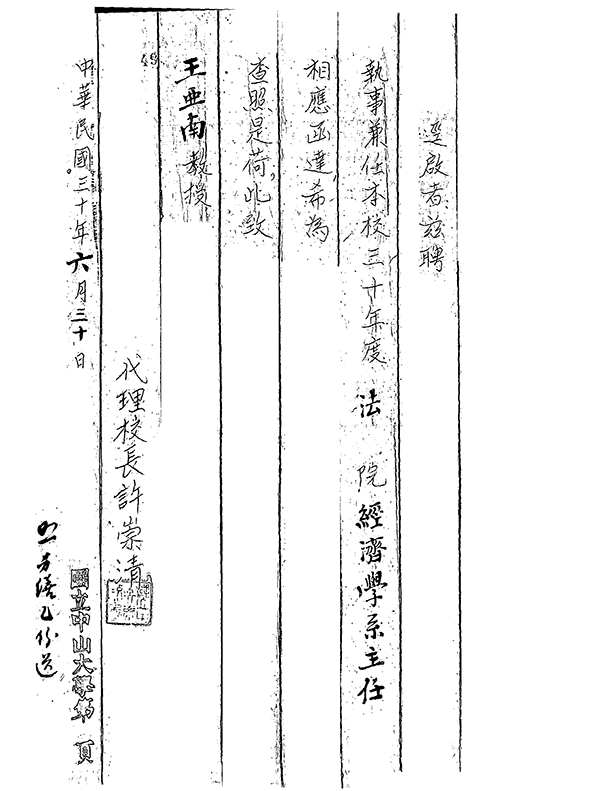 逕啟者茲聘
執事兼任本校三十年度法 院經濟學系主任
相應函達,希為
查照是荷,此致
王亞南教授
49
代理校長許崇清
中華民國三十年六月三十日
國立中山大學箋 頁